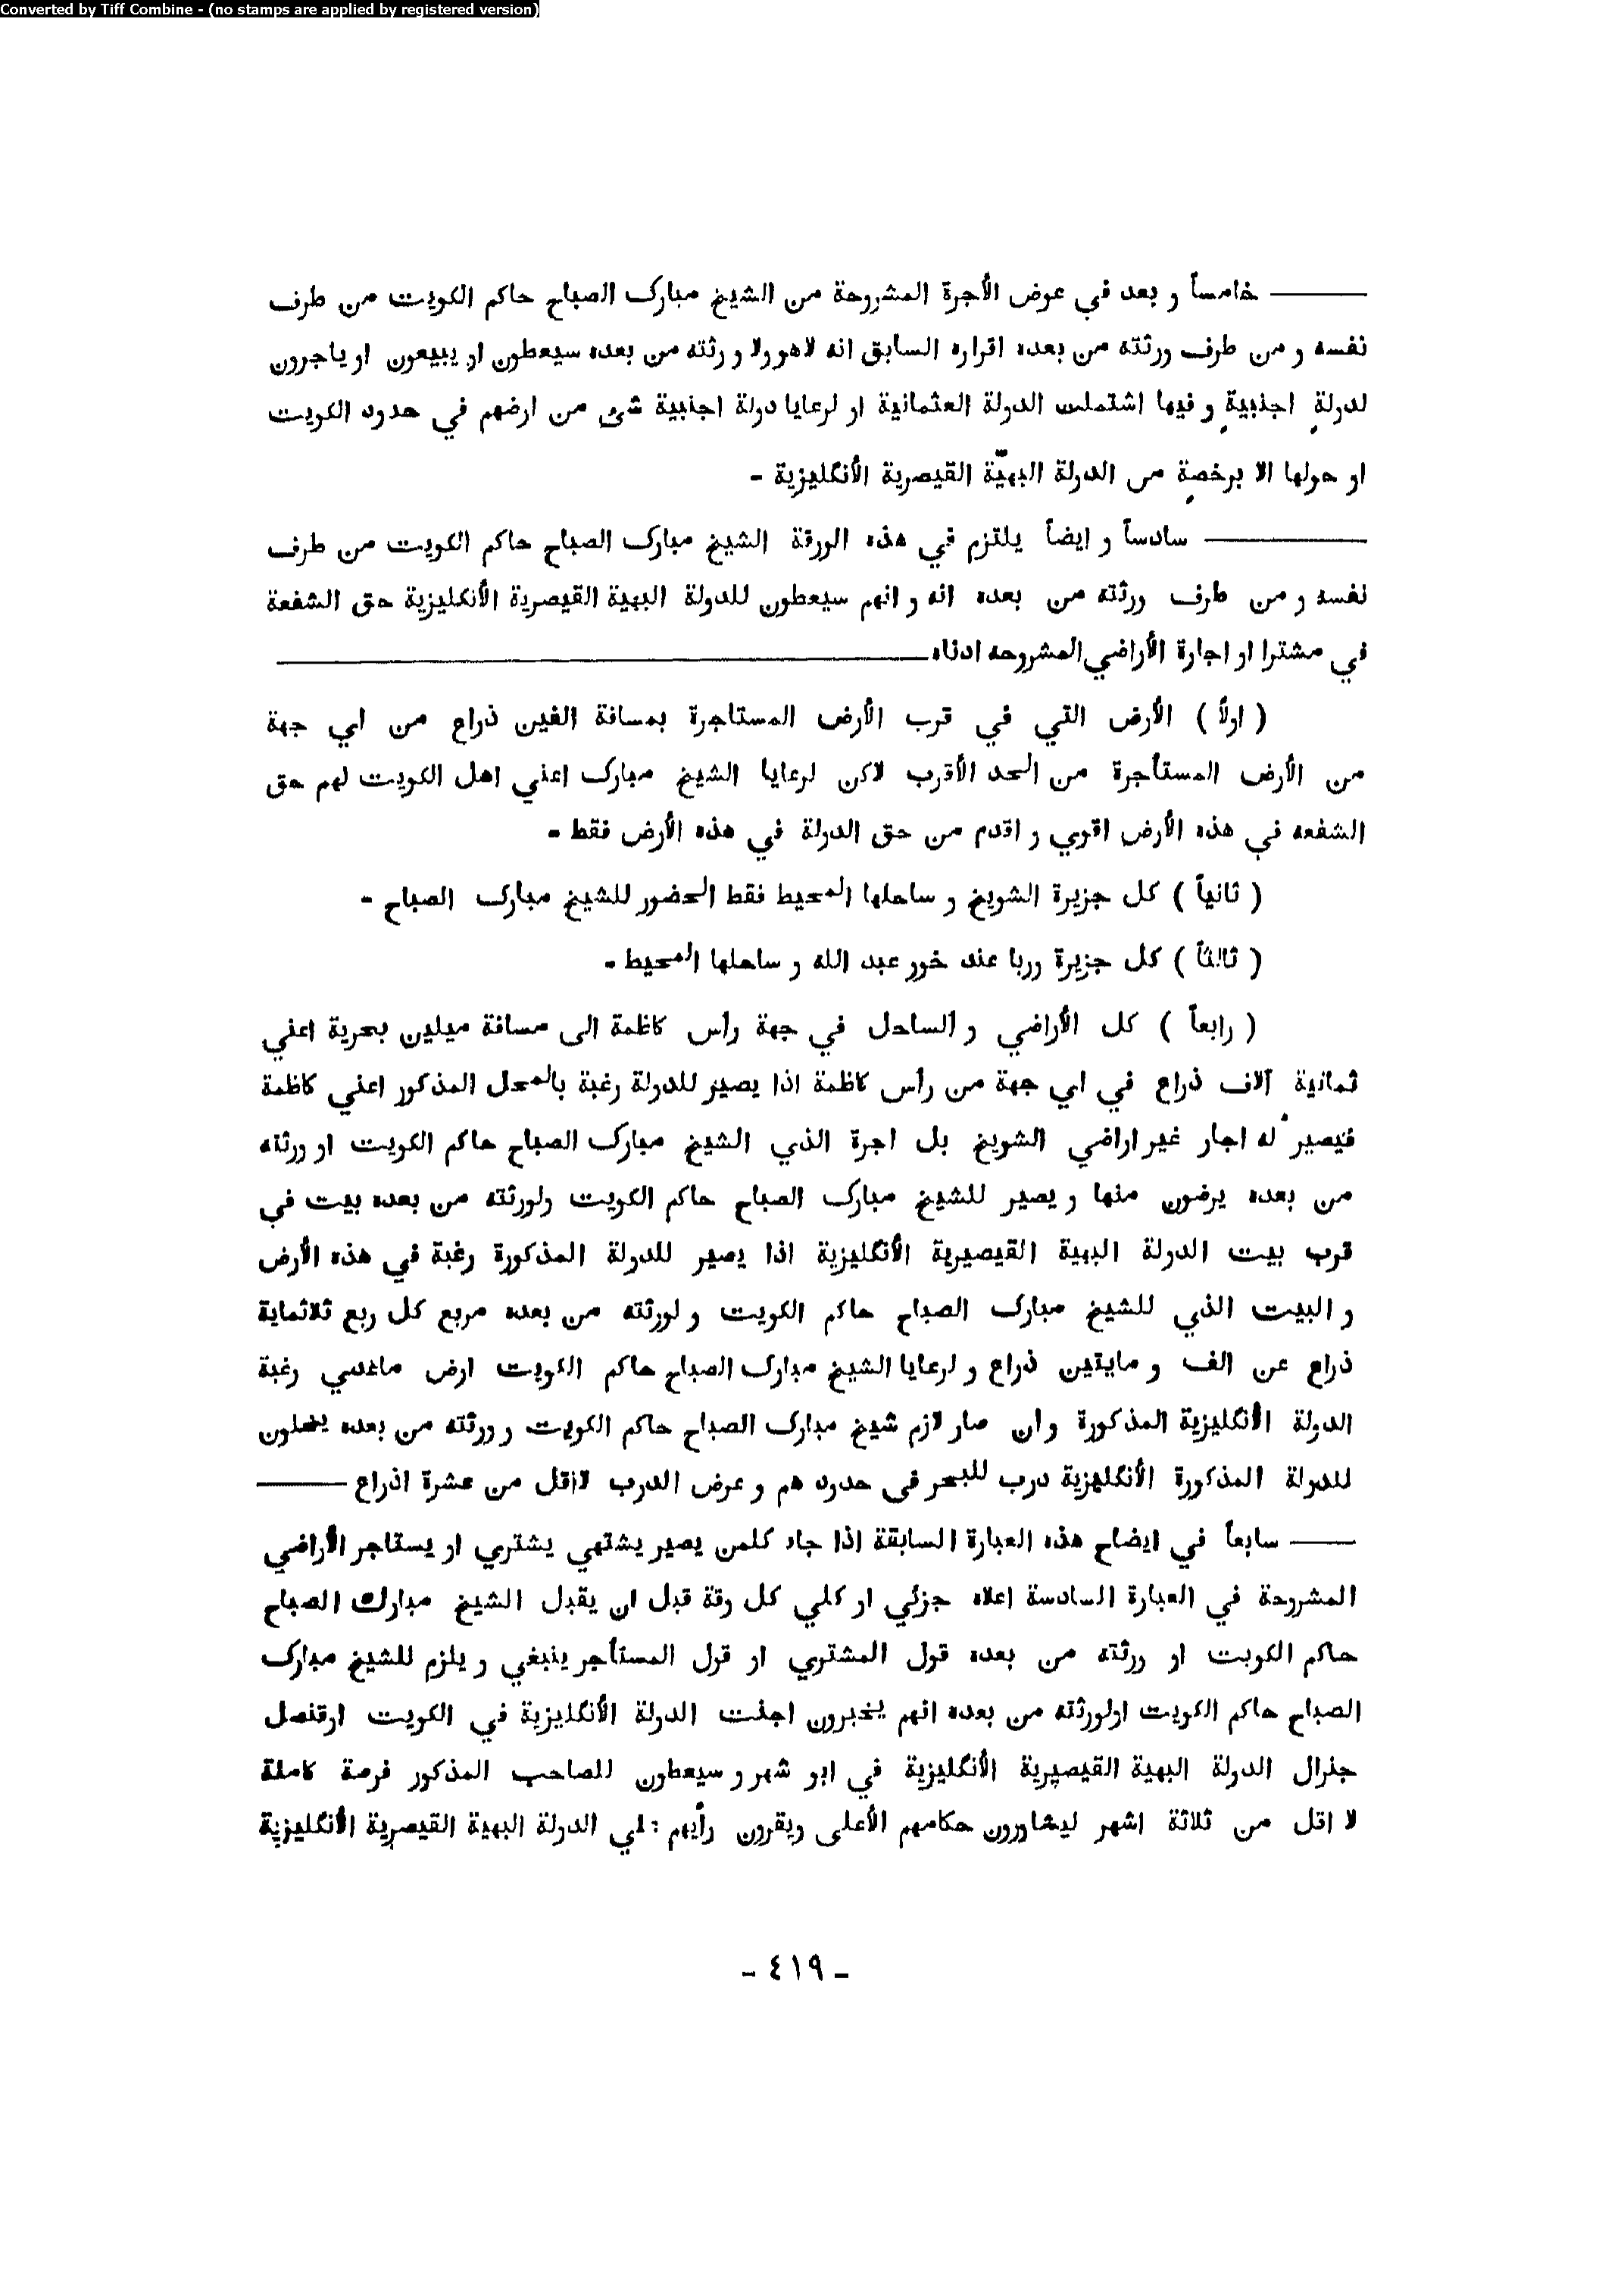 Converted by Tiff Combine - (no stamps are applied by registered version)
——— خامساً و بعد في عوض الأجرة المشروحة من الشيخ مبارك الصباح حاكم الكويت من طرف
نفسه و من طرف ورثته من بعده اقراره السابق انه لاهو ولا ورثته من بعده سيعطون او يبيعون او ياجرون
لدولةٍ اجنبيةٍ و فيها اشتملت الدولة العثمانية او لرعايا دولة اجنبية شئ من ارضهم في حدود الكويت
او حولها الا برخصةٍ من الدولة البهيّة القيصرية الأنكليزية -
——— سادساً و ايضاً يلتزم في هذه الورقة الشيخ مبارك الصباح حاكم الكويت من طرف
نفسه و من طرف ورثته من بعده انه و انهم سيعطون للدولة البهية القيصرية الأنكليزية حق الشفعة
في مشترا او اجارة الأراضي المشروحه ادناه ———
( اولاً ) الأرض التي في قرب الأرض المستاجرة بمسافة الفين ذراع من اي جهة
من الأرض المستأجرة من الحد الأقرب لاكن لرعايا الشيخ مبارك اعني اهل الكويت لهم حق
الشفعه في هذه الأرض اقوي و اقدم من حق الدولة في هذه الأرض فقط -
( ثانياً ) كل جزيرة الشويخ و ساحلها المحيط فقط الحضور للشيخ مبارك الصباح -
( ثالثاً ) كل جزيرة وربا عند خور عبد الله و ساحلها المحيط -
( رابعاً ) كل الأراضي و الساحل في جهة رأس كاظمة الى مسافة ميلين بحرية اعني
ثمانية آلاف ذراع في اي جهة من رأس كاظمة اذا يصير للدولة رغبة بالمحل المذكور اعني كاظمة
فيصير له اجار غير اراضي الشويخ بل اجرة الذي الشيخ مبارك الصباح حاكم الكويت او ورثته
من بعده يرضون منها و يصير للشيخ مبارك الصباح حاكم الكويت ولورثته من بعده بيت في
قرب بيت الدولة البهية القيصيرية الأنكليزية اذا يصير للدولة المذكورة رغبة في هذه الأرض
و البيت الذي للشيخ مبارك الصباح حاكم الكويت و لورثته من بعده مربع كل ربع ثلاثماية
ذراع عن الف و مايتين ذراع و لرعايا الشيخ مبارك الصباح حاكم الكويت ارض رغبة
الدولة الأنكليزية المذكورة و ان صار لازم شيخ مبارك الصباح حاكم الكويت و ورثته من بعده يخلون
للدولة المذكورة الأنكليزية درب للبحر في حدود هم و عرض الدرب لااقل من عشرة اذراع ———
——— سابعاً في ايضاح هذه العبارة السابقة اذا جاد كلمن يصير يشتهي يشتري او يستاجر الأراضي
المشروحة في العبارة السادسة اعلاه جزئي او كلي كل وقة قبل ان يقبل الشيخ مبارك الصباح
حاكم الكويت او ورثته من بعده قول المشتري او قول المستأجر ينبغي و يلزم للشيخ مبارك
الصباح حاكم الكويت اولورثته من بعده انهم يخبرون اجنت الدولة الأنكليزية في الكويت اوقنصل
جنرال الدولة البهية القيصيرية الأنكليزية في ابو شهر و سيعطون للصاحب المذكور فرصة كاملة
لا اقل من ثلاثة اشهر ليشاورون حكامهم الأعلى ويقرون رأيهم : اي الدولة البهية القيصرية الأنكليزية
- ٤١٩ -